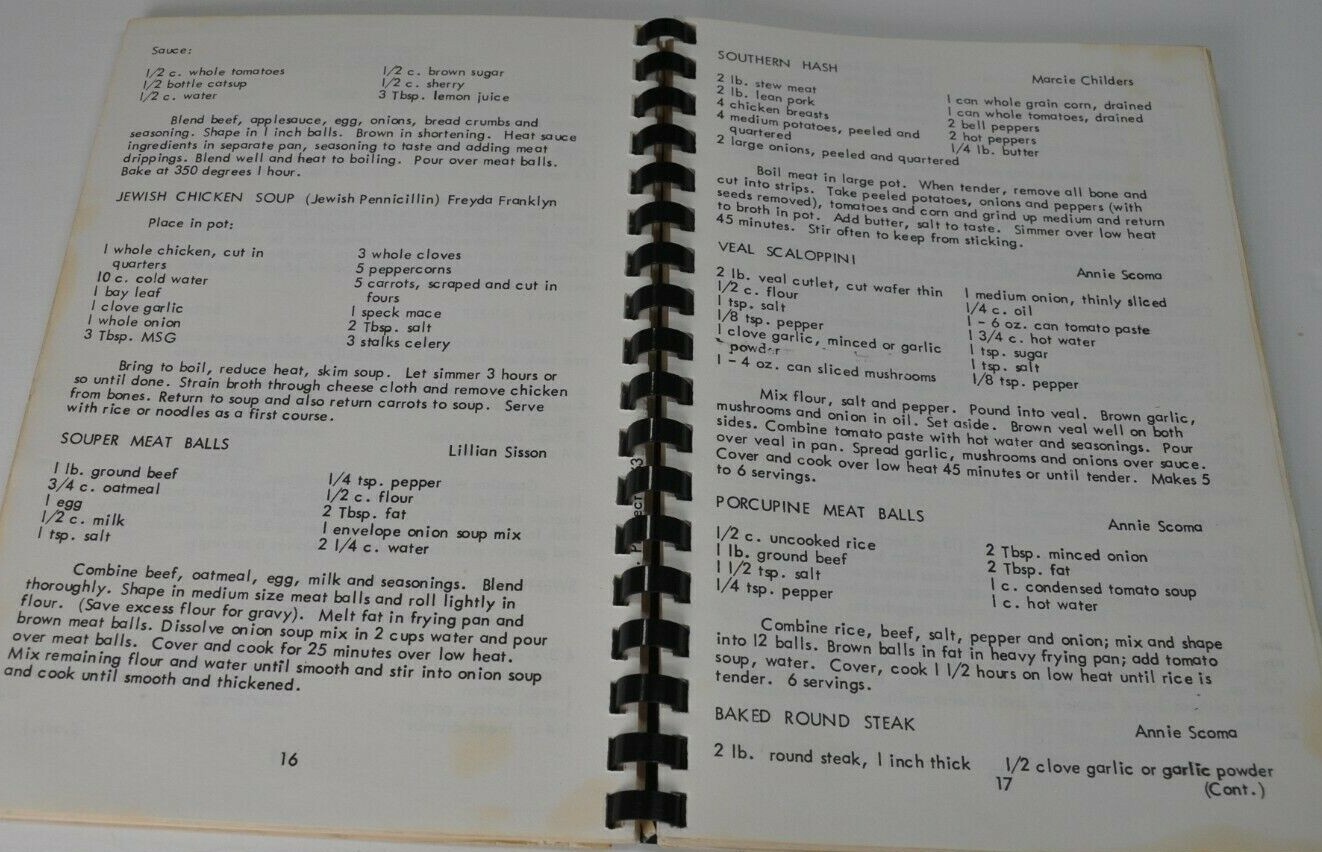 Sauce:
1/2 c. whole tomatoes
1/2 bottle catsup
1/2 c. water
1/2 c. brown sugar
1/2 c. sherry
3 Tbsp. lemon juice
Blend beef, applesauce, egg, onions, bread crumbs and
seasoning. Shape in 1 inch balls. Brown in shortening. Heat sauce
ingredients in separate pan, seasoning to taste and adding meat
drippings. Blend well and heat to boiling. Pour over meat balls.
Bake at 350 degrees 1 hour.
JEWISH CHICKEN SOUP (Jewish Pennicillin) Freyda Franklyn
Place in pot:
1 whole chicken, cut in
quarters
10 c. cold water
1 bay leaf
1 clove garlic
1 whole onion
3 Tbsp. MSG
3 whole cloves
5 peppercorns
5 carrots, scraped and cut in
fours
1 speck mace
2 Tbsp. salt
3 stalks celery
Bring to boil, reduce heat, skim soup. Let simmer 3 hours or
so until done. Strain broth through cheese cloth and remove chicken
from bones. Return to soup and also return carrots to soup. Serve
with rice or noodles as a first course.
SOUPER MEAT BALLS
Lillian Sisson
1 lb. ground beef
3/4 c. oatmeal
1 egg
1/2 c. milk
1 tsp. salt
1/4 tsp. pepper
1/2 c. flour
2 Tbsp. fat
1 envelope onion soup mix
2 1/4 c. water
Combine beef, oatmeal, egg, milk and seasonings. Blend
thoroughly. Shape in medium size meat balls and roll lightly in
flour. (Save excess flour for gravy). Melt fat in frying pan and
brown meat balls. Dissolve onion soup mix in 2 cups water and pour
over meat balls. Cover and cook for 25 minutes over low heat.
Mix remaining flour and water until smooth and stir into onion soup
and cook until smooth and thickened.
16
SOUTHERN HASH
Marcie Childers
2 lb. stew meat
2 lb. lean pork
4 chicken breasts
4 medium potatoes, peeled and
quartered
2 large onions, peeled and quartered
1 can whole grain corn, drained
1 can whole tomatoes, drained
2 bell peppers
2 hot peppers
1/4 lb. butter
Boil meat in large pot. When tender, remove all bone and
cut into strips. Take peeled potatoes, onions and peppers (with
seeds removed), tomatoes and corn and grind up medium and return
to broth in pot. Add butter, salt to taste. Simmer over low heat
45 minutes. Stir often to keep from sticking.
VEAL SCALOPPINI
Annie Scoma
2 lb. veal cutlet, cut wafer thin
1/2 c. flour
1 tsp. salt
1/8 tsp. pepper
1 clove garlic, minced or garlic
powder
1 - 4 oz. can sliced mushrooms
1 medium onion, thinly sliced
1/4 c. oil
1 - 6 oz. can tomato paste
1 3/4 c. hot water
1 tsp. sugar
1 tsp. salt
1/8 tsp. pepper
Mix flour, salt and pepper. Pound into veal. Brown garlic,
mushrooms and onion in oil. Set aside. Brown veal well on both
sides. Combine tomato paste with hot water and seasonings. Pour
over veal in pan. Spread garlic, mushrooms and onions over sauce.
Cover and cook over low heat 45 minutes or until tender. Makes 5
to 6 servings.
PORCUPINE MEAT BALLS
Annie Scoma
1/2 c. uncooked rice
1 lb. ground beef
1 1/2 tsp. salt
1/4 tsp. pepper
2 Tbsp. minced onion
2 Tbsp. fat
1 c. condensed tomato soup
1 c. hot water
Combine rice, beef, salt, pepper and onion; mix and shape
into 12 balls. Brown balls in fat in heavy frying pan; add tomato
soup, water. Cover, cook 1 1/2 hours on low heat until rice is
tender. 6 servings.
BAKED ROUND STEAK
Annie Scoma
2 lb. round steak, 1 inch thick
1/2 clove garlic or garlic powder
17
(Cont.)